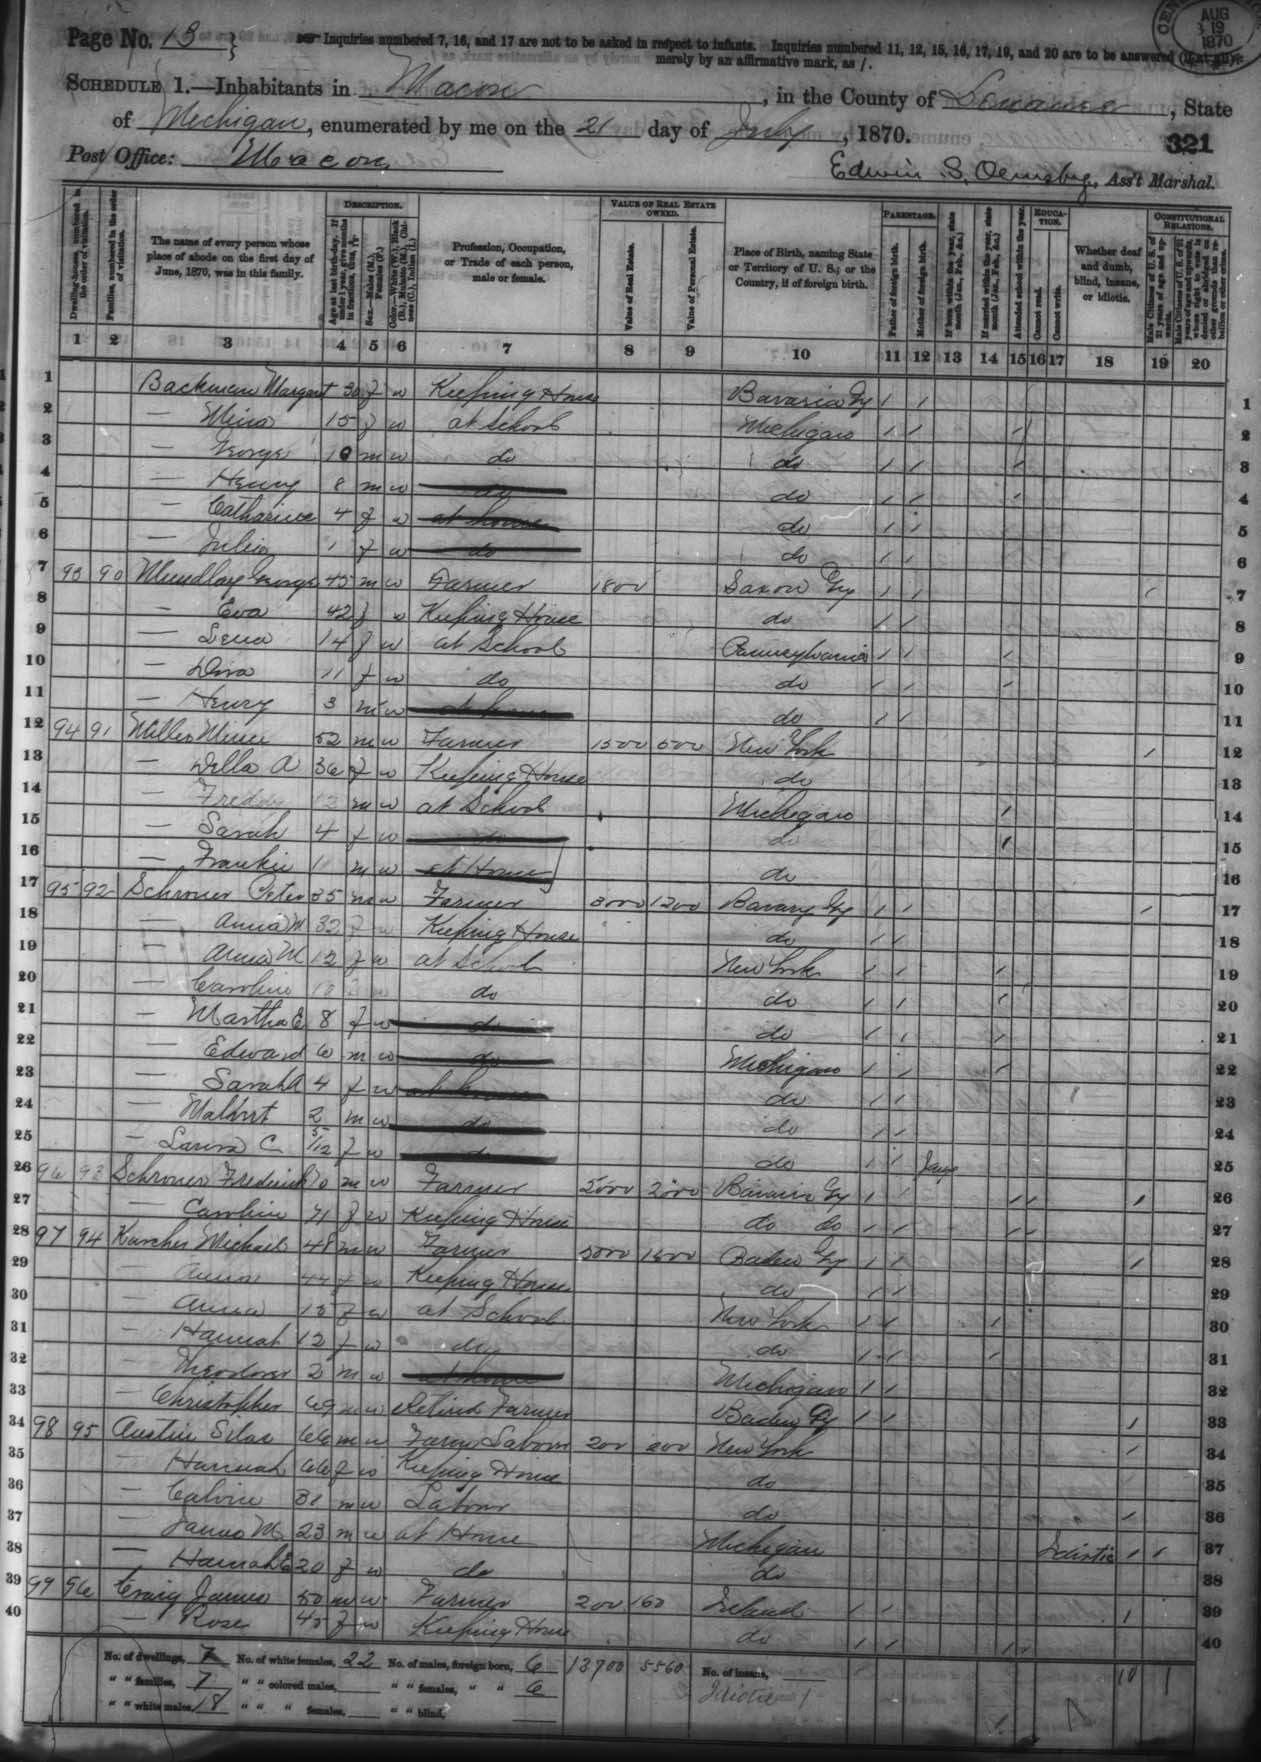 Page No. 13
Inquiries numbered 7, 16, and 17 are not to be asked in respect to infants. Inquiries numbered 11, 12, 15, 16, 17, 19, and 20 are to be answered (if at all)
merely by an affirmative mark, as /.
AUG 19 1870
SCHEDULE 1.—Inhabitants in Macon, in the County of Lenawee, State
of Michigan, enumerated by me on the 21 day of July, 1870.
321
Post Office: Macon
Edwin S. Ormsby, Ass't Marshal.
Dwelling-houses, numbered in the order of visitation.
Families, numbered in the order of visitation.
The name of every person whose place of abode on the first day of June, 1870, was in this family.
DESCRIPTION.
Age at last birth-day. If under 1 year, give months in fractions, thus, 3/12
Sex.—Males (M.), Females (F.)
Color.—White (W.), Black (B.), Mulatto (M.), Chinese (C.), Indian (I.)
Profession, Occupation, or Trade of each person, male or female.
VALUE OF REAL ESTATE OWNED.
Value of Real Estate.
Value of Personal Estate.
Place of Birth, naming State or Territory of U. S.; or the Country, if of foreign birth.
PARENTAGE.
Father of foreign birth.
Mother of foreign birth.
If born within the year, state month (Jan., Feb., &c.)
If married within the year, state month (Jan., Feb., &c.)
Attended school within the year.
EDUCATION.
Cannot read.
Cannot write.
Whether deaf and dumb, blind, insane, or idiotic.
CONSTITUTIONAL RELATIONS.
Male Citizens of U. S. of 21 years of age and upwards.
Male Citizens of U. S. of 21 years of age and upwards, whose right to vote is denied or abridged on other grounds than rebellion or other crime.
1 2 3 4 5 6 7 8 9 10 11 12 13 14 15 16 17 18 19 20
1 Margaret 30 f w Keeping House Bavaria Gy / / 1
2 — Mina 15 f w at School Michigan / / / 2
3 — George 10 m w do do / / / 3
4 — Henry 8 m w do do / / / 4
5 — Catharine 4 f w at home do / / 5
6 — Julia 1 f w do do / / 6
7 93 90 George 45 m w Farmer 1800 Saxon Gy / / / 7
8 — Eva 42 f w Keeping House do / / 8
9 — Lena 14 f w at School Pennsylvania / / / 9
10 — Dora 11 f w do do / / / 10
11 — Henry 3 m w at home do / / 11
12 94 91 52 m w Farmer 1500 500 New York / 12
13 — Della A 36 f w Keeping House do 13
14 — Freddy 12 m w at School Michigan / 14
15 — Sarah 4 f w do do / 15
16 — Frankie 1 m w at Home do 16
17 95 92 Schroner Peter 35 m w Farmer 3000 1200 Bavary Gy / / / 17
18 — Anna M 32 f w Keeping House do / / 18
19 — Anna M 12 f w at School New York / / / 19
20 — Caroline 10 f w do do / / / 20
21 — Martha E 8 f w do do / / / 21
22 — Edward 6 m w do Michigan / / / 22
23 — Sarah A 4 f w at home do / / 23
24 — 2 m w do do / / 24
25 — C 5/12 f w do do / / Jany 25
26 96 93 Schroner Frederick 70 m w Farmer 2000 Bavaria Gy / / / / / 26
27 — Caroline 71 f w Keeping House do do / / / / 27
28 97 94 Karcher Michael 48 m w Farmer 5000 1500 Baden Gy / / / 28
29 — Anna 44 f w Keeping House do / / 29
30 — Anna 15 f w at School New York / / / 30
31 — Hannah 12 f w do do / / / 31
32 — Theodore 2 m w at home Michigan / / 32
33 — Christopher 69 m w Retired Farmer Baden Gy / / / 33
34 98 95 Austin Silas 66 m w Farm Labour 200 200 New York / 34
35 — Hannah 66 f w Keeping House do 35
36 — Calvin 31 m w Labour do / 36
37 — James M 23 m w at Home Michigan Idiotic / / 37
38 — Hannah E 20 f w do do 38
39 99 96 Craig James 50 m w Farmer 200 160 Ireland / / / 39
40 — Rose 45 f w Keeping House do / / / / 40
No. of dwellings, 7 No. of white females, 22 No. of males, foreign born, 6 13700 5560 No. of insane, 10 1
" " families, 7 " " colored males, " " females, " " 6 Idiotic 1
" " white males, 18 " " " females, " " blind,